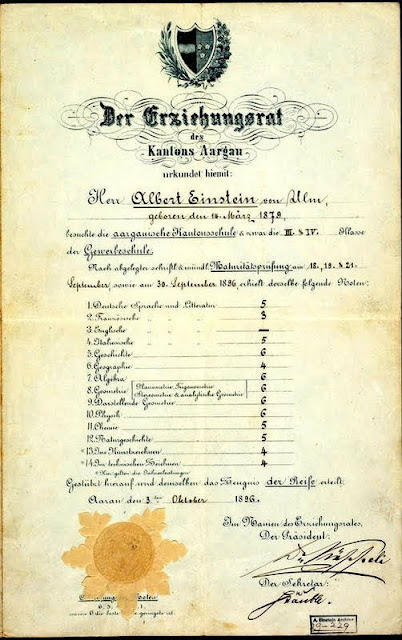 Der Erziehungsrat
des
Kantons Aargau
urkundet hiemit:
Herr Albert Einstein von Ulm,
geboren den 14. März 1879,
besuchte die aargauische Kantonsschule & zwar die III. & IV. Klasse
der Gewerbeschule.
Nach abgelegter schriftl. & mündl. Maturitätsprüfung am 18., 19. & 21.
September, sowie am 30. September 1896 erhielt derselbe folgende Noten:
1. Deutsche Sprache und Litteratur 5
2. Französische " " " 3
3. Englische " " " —
4. Italienische " " " 5
5. Geschichte 6
6. Geographie 4
7. Algebra 6
8. Geometrie Planimetrie, Trigonometrie Stereometrie & analytische Geometrie 6
9. Darstellende Geometrie 6
10. Physik 6
11. Chemie 5
12. Naturgeschichte 5
*13. Im Kunstzeichnen 4
*14. Im technischen Zeichnen 4
* Hier gelten die Jahresleistungen.
Gestützt hierauf wird demselben das Zeugnis der Reife erteilt.
Aarau den 3ten Oktober 1896.
Im Namen des Erziehungsrates,
Der Präsident:
Der Sekretär:
A. Einstein Archive
29-229